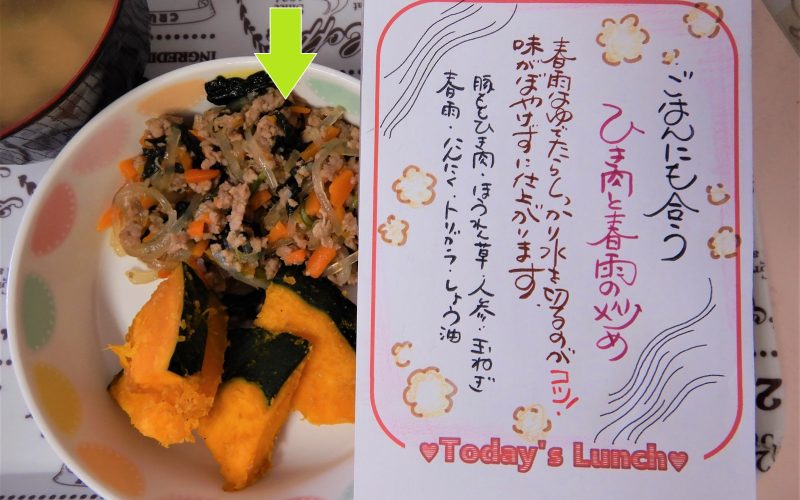 ごはんにも合う
ひき肉と春雨の炒め
春雨はゆでたらしっかり水を切るのがコツ!
味がぼやけずに仕上がります。
豚ももひき肉・ほうれん草・人参・玉ねぎ
春雨・にんにく・トリガラ・しょう油
♥Today's Lunch♥
INGREDIE